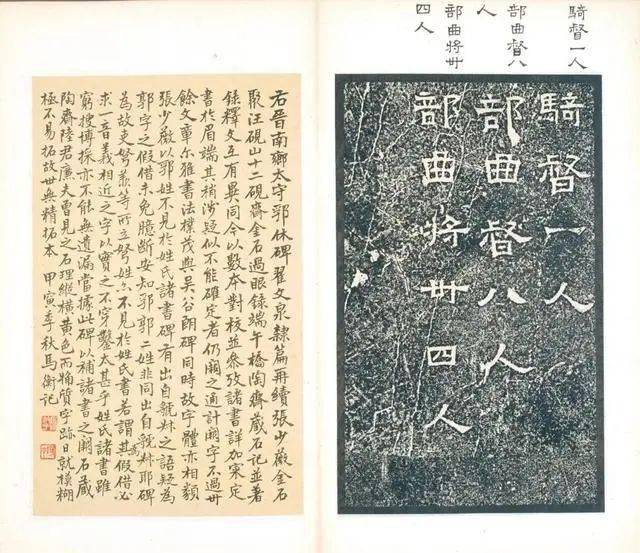 騎督一人
部曲督八
人
部曲將卅
四人
騎督一人
部曲督八人
部曲將卅四人
右晉南鄉太守郛休碑翟文泉隸篇再續張少薇金石
聚汪硯山十二硯齋金石過眼錄端午橋陶齋藏石記並著
錄釋文互有異同今以數本對校並參攷諸書詳加案定
書於眉端其稍涉疑似不能確定者仍闕之通計闕字不過卅
餘文章尔雅書法樸茂與吳谷朗碑同時故字體亦相類
張少薇以郛姓不見於姓氏諸書碑有出自虢叔之語疑為
郭字之假借未免臆斷安知郛郭二姓非同出自虢叔耶碑
為故吏等所立姓亦不見於姓氏書若謂其假借必
求一音義相近之字以實之不穿鑿太甚乎姓氏諸書雖
窮搜博採亦不能無遺漏當據此碑以補諸書之闕石藏
陶齋陸君廉夫曾見之石理縱橫黃色而粗質字跡日就模糊
極不易拓故世無精拓本 甲寅季秋馬衡記